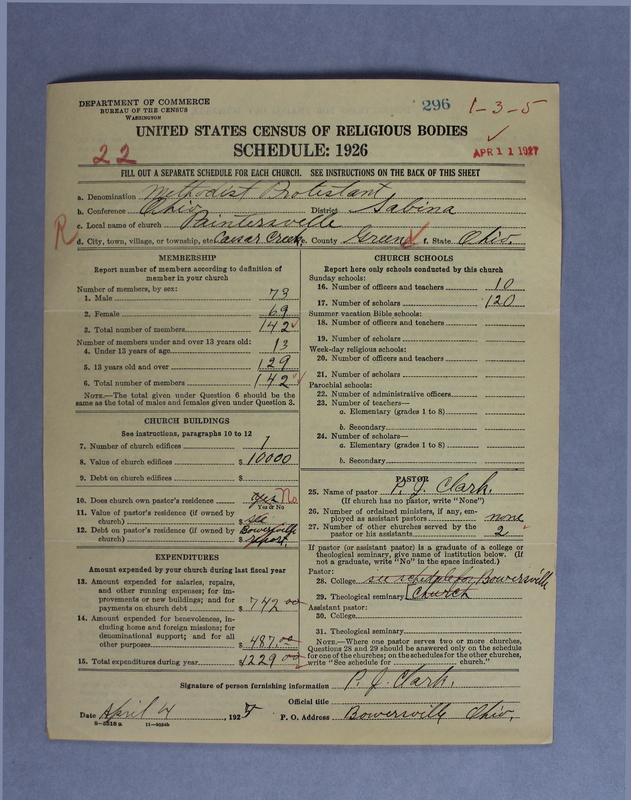 DEPARTMENT OF COMMERCE
BUREAU OF THE CENSUS
WASHINGTON
296 1-3-5
UNITED STATES CENSUS OF RELIGIOUS BODIES
22 SCHEDULE: 1926 APR 11 1927
FILL OUT A SEPARATE SCHEDULE FOR EACH CHURCH. SEE INSTRUCTIONS ON THE BACK OF THIS SHEET
a. Denomination Methodist Protestant
b. Conference Ohio District Sabina
c. Local name of church Paintersville
R d. City, town, village, or township, etc. Caesar Creek e. County Green f. State Ohio.
MEMBERSHIP
Report number of members according to definition of
member in your church
Number of members, by sex:
1. Male 73
2. Female 69
3. Total number of members 142
Number of members under and over 13 years old:
4. Under 13 years of age 13
5. 13 years old and over 129
6. Total number of members 142
NOTE.—The total given under Question 6 should be the
same as the total of males and females given under Question 3.
CHURCH BUILDINGS
See instructions, paragraphs 10 to 12
7. Number of church edifices 1
8. Value of church edifices $ 10000
9. Debt on church edifices $
10. Does church own pastor's residence Yes No
Yes or No
11. Value of pastor's residence (if owned by
church) $ see
12. Debt on pastor's residence (if owned by Bowersville
church) $ report.
EXPENDITURES
Amount expended by your church during last fiscal year
13. Amount expended for salaries, repairs,
and other running expenses; for im-
provements or new buildings; and for
payments on church debt $ 742 00
14. Amount expended for benevolences, in-
cluding home and foreign missions; for
denominational support; and for all
other purposes $ 487.00
15. Total expenditures during year $ 1229 00
CHURCH SCHOOLS
Report here only schools conducted by this church
Sunday schools:
16. Number of officers and teachers 10
17. Number of scholars 120
Summer vacation Bible schools:
18. Number of officers and teachers
19. Number of scholars
Week-day religious schools:
20. Number of officers and teachers
21. Number of scholars
Parochial schools:
22. Number of administrative officers
23. Number of teachers—
a. Elementary (grades 1 to 8)
b. Secondary
24. Number of scholars—
a. Elementary (grades 1 to 8)
b. Secondary
PASTOR
25. Name of pastor P. J. Clark.
(If church has no pastor, write "None")
26. Number of ordained ministers, if any, em-
ployed as assistant pastors none
27. Number of other churches served by the
pastor or his assistants 2
If pastor (or assistant pastor) is a graduate of a college or
theological seminary, give name of institution below. (If
not a graduate, write "No" in the space indicated.)
Pastor:
28. College see schedule for Bowersville
29. Theological seminary Church
Assistant pastor:
30. College
31. Theological seminary
NOTE.—Where one pastor serves two or more churches,
Questions 28 and 29 should be answered only on the schedule
for one of the churches; on the schedules for the other churches,
write "See schedule for church."
Signature of person furnishing information P. J. Clark.
Official title
Date April 4, 1927 P. O. Address Bowersville Ohio.